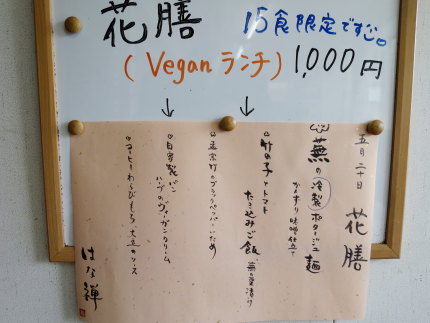 花膳
15食限定ですご。
(Veganランチ)
1,000円
五月二十日
花膳
蕪の冷製ポタージュ麺
かんずり味噌仕立て
竹の子とトマト
たき込みご飯、蕪の葉漬け
ブラックペッパーいため
自家製パン
ハーブのヴィーガンクリーム
コーヒーわらびもち 大豆のソース
はな禅